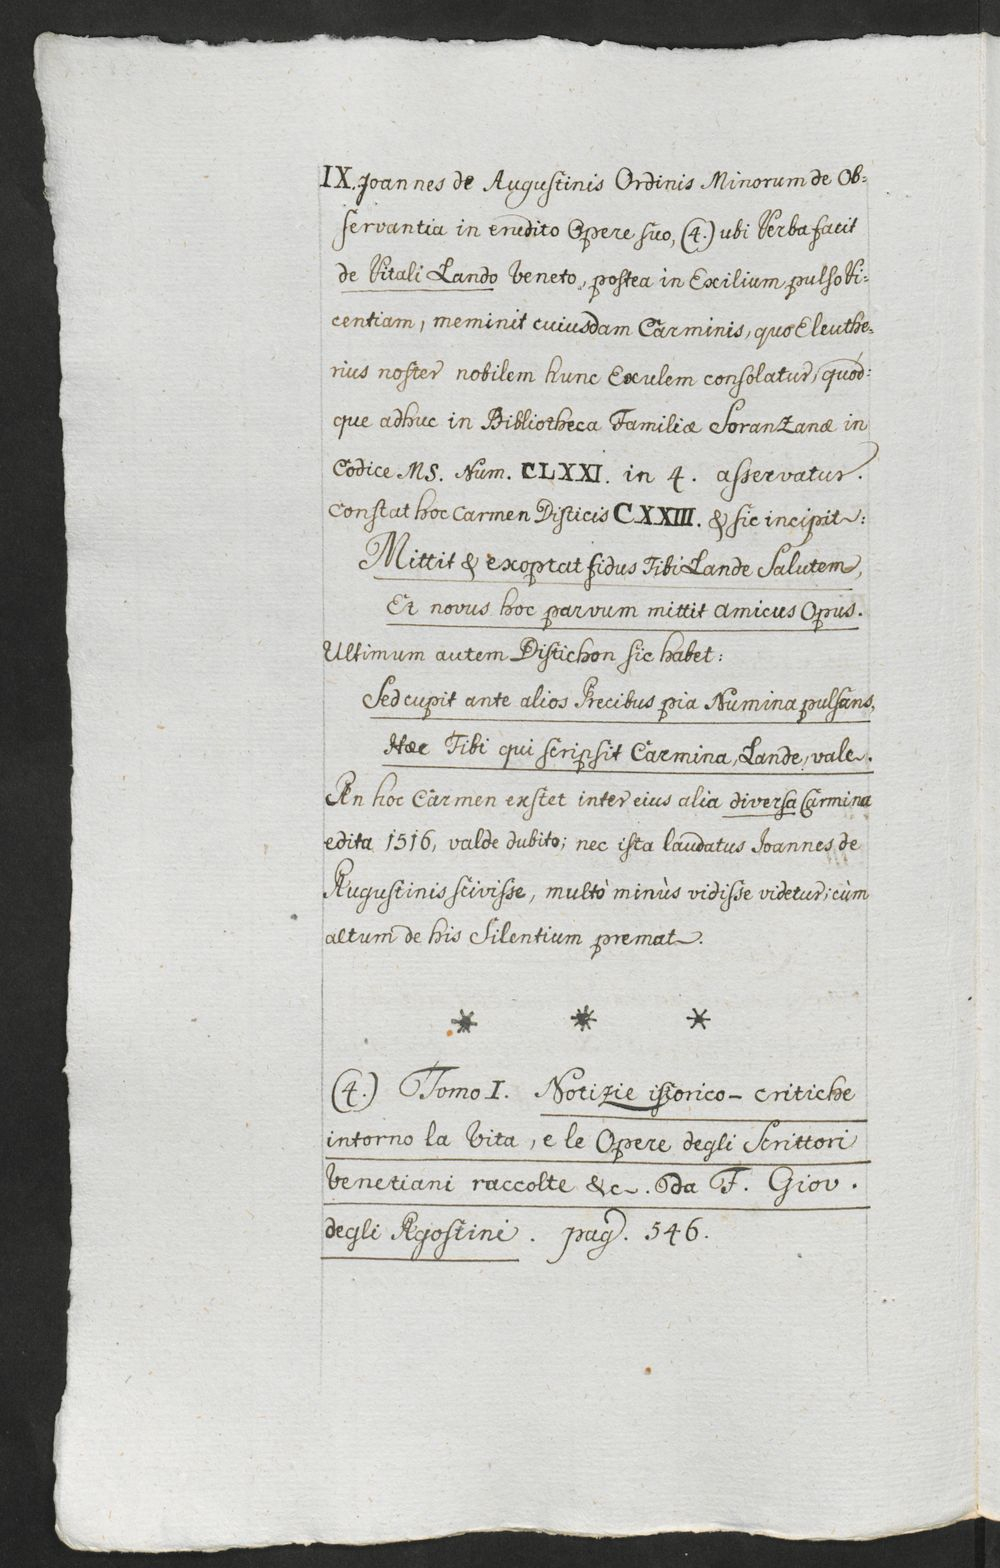 IX. Joannes de Augustinis Ordinis Minorum de Ob-
servantia in erudito Opere suo, (4.) ubi Verba facit
de Vitali Lando Veneto, postea in Exilium pulso Vi-
centiam, meminit cuiusdam Carminis, quo Eleuthe-
rius noster nobilem hunc Exulem consolatur, quod-
que adhuc in Bibliotheca Familiæ Soranzanæ in
Codice MS. Num. CLXXI. in 4. asservatur.
Constat hoc Carmen Disticis CXXIII. & sic incipit:
Mittit & exoptat fidus Tibi Lande Salutem,
Et novus hoc parvum mittit Amicus Opus.
Ultimum autem Distichon sic habet:
Sed cupit ante alios Precibus pia Numina pulsans,
Hæc Tibi qui scripsit Carmina, Lande, vale.
An hoc Carmen exstet inter eius alia diversa Carmina
edita 1516, valde dubito; nec ista laudatus Joannes de
Augustinis scivisse, multò minùs vidisse videtur; cùm
altum de his Silentium premat.
* * *
(4.) Tomo I. Notizie istorico - critiche
intorno la Vita, e le Opere degli Scrittori
Venetiani raccolte &c. Da F. Giov.
degli Agostini. pag. 546.